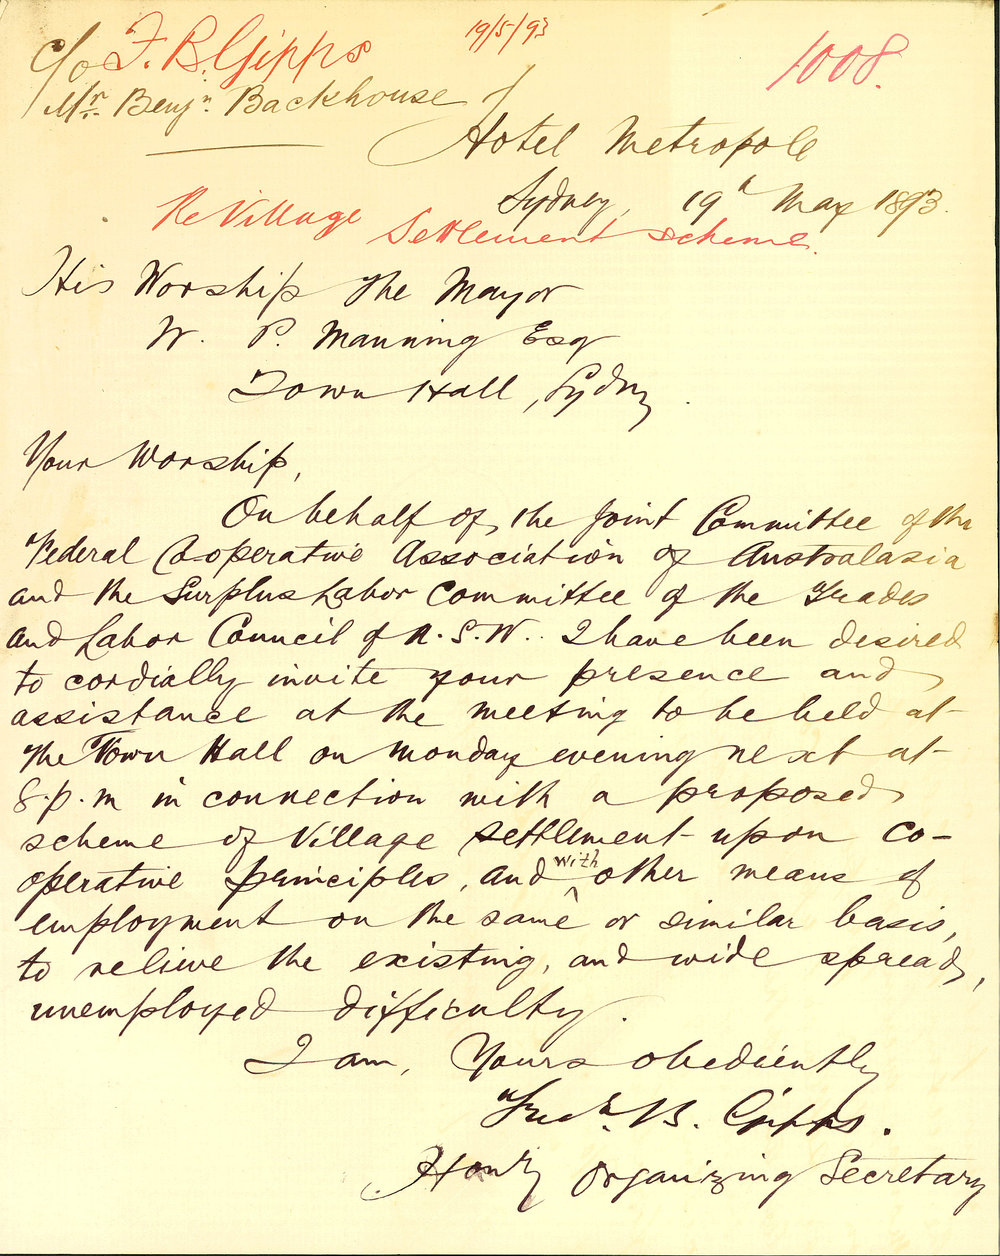 19/5/93
F. B. Gipps
1008.
c/o
Mr. Benjn. Backhouse
Hotel Metropole
Sydney, 19th May 1893.
Re Village Settlement Scheme.
His Worship the Mayor
W. P. Manning Esq
Town Hall, Sydney.
Your Worship,
On behalf of, the Joint Committee of the
Federal Co-operative Association of Australasia
and the Surplus Labor Committee of the Trades
and Labor Council of N.S.W.. I have been desired
to cordially invite your presence and
assistance at the meeting to be held at
the Town Hall on Monday evening next at
8.p.m in connection with a proposed
scheme of Village settlement upon co-
operative principles, and with other means of
employment on the same or similar basis,
to relieve the existing, and wide spread,
unemployed difficulty.
I am, Yours obediently
Fredk. B. Gipps.
Honry Organizing Secretary